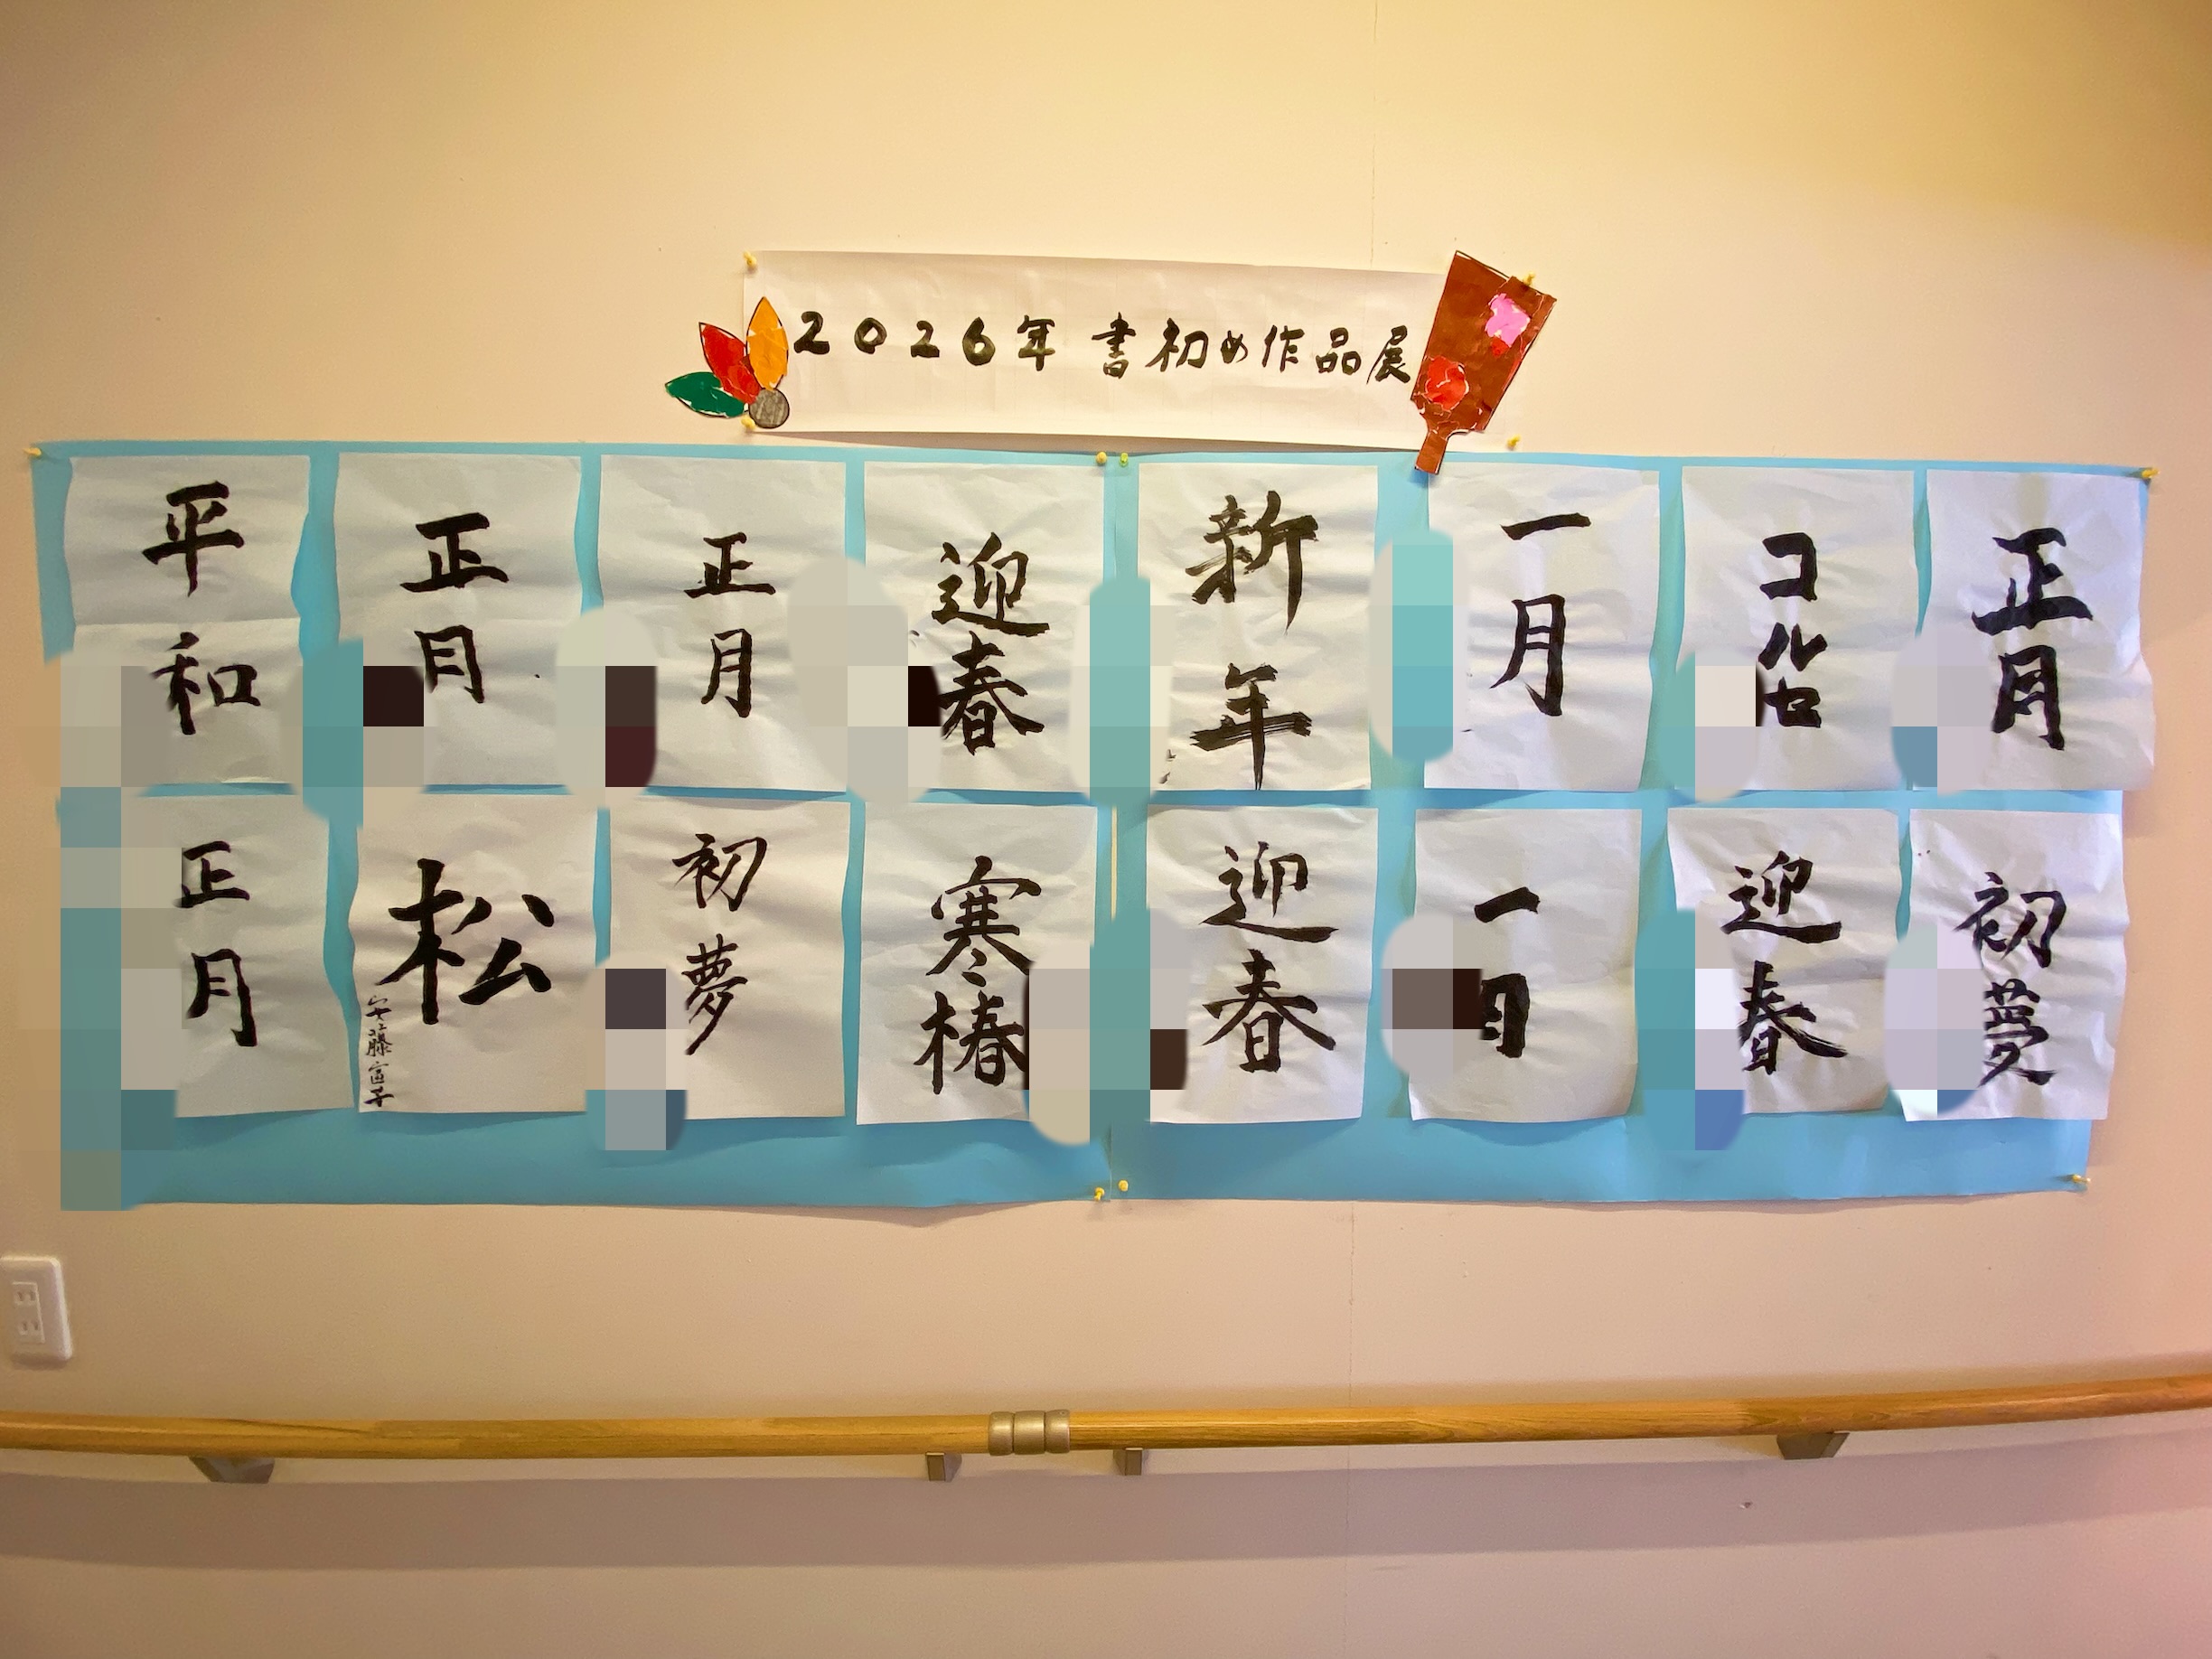 2026年 書初め作品展
平和
正月
正月
迎春
新年
一月
コルセ
正月
正月
松
初夢
寒椿
迎春
一月
迎春
初夢